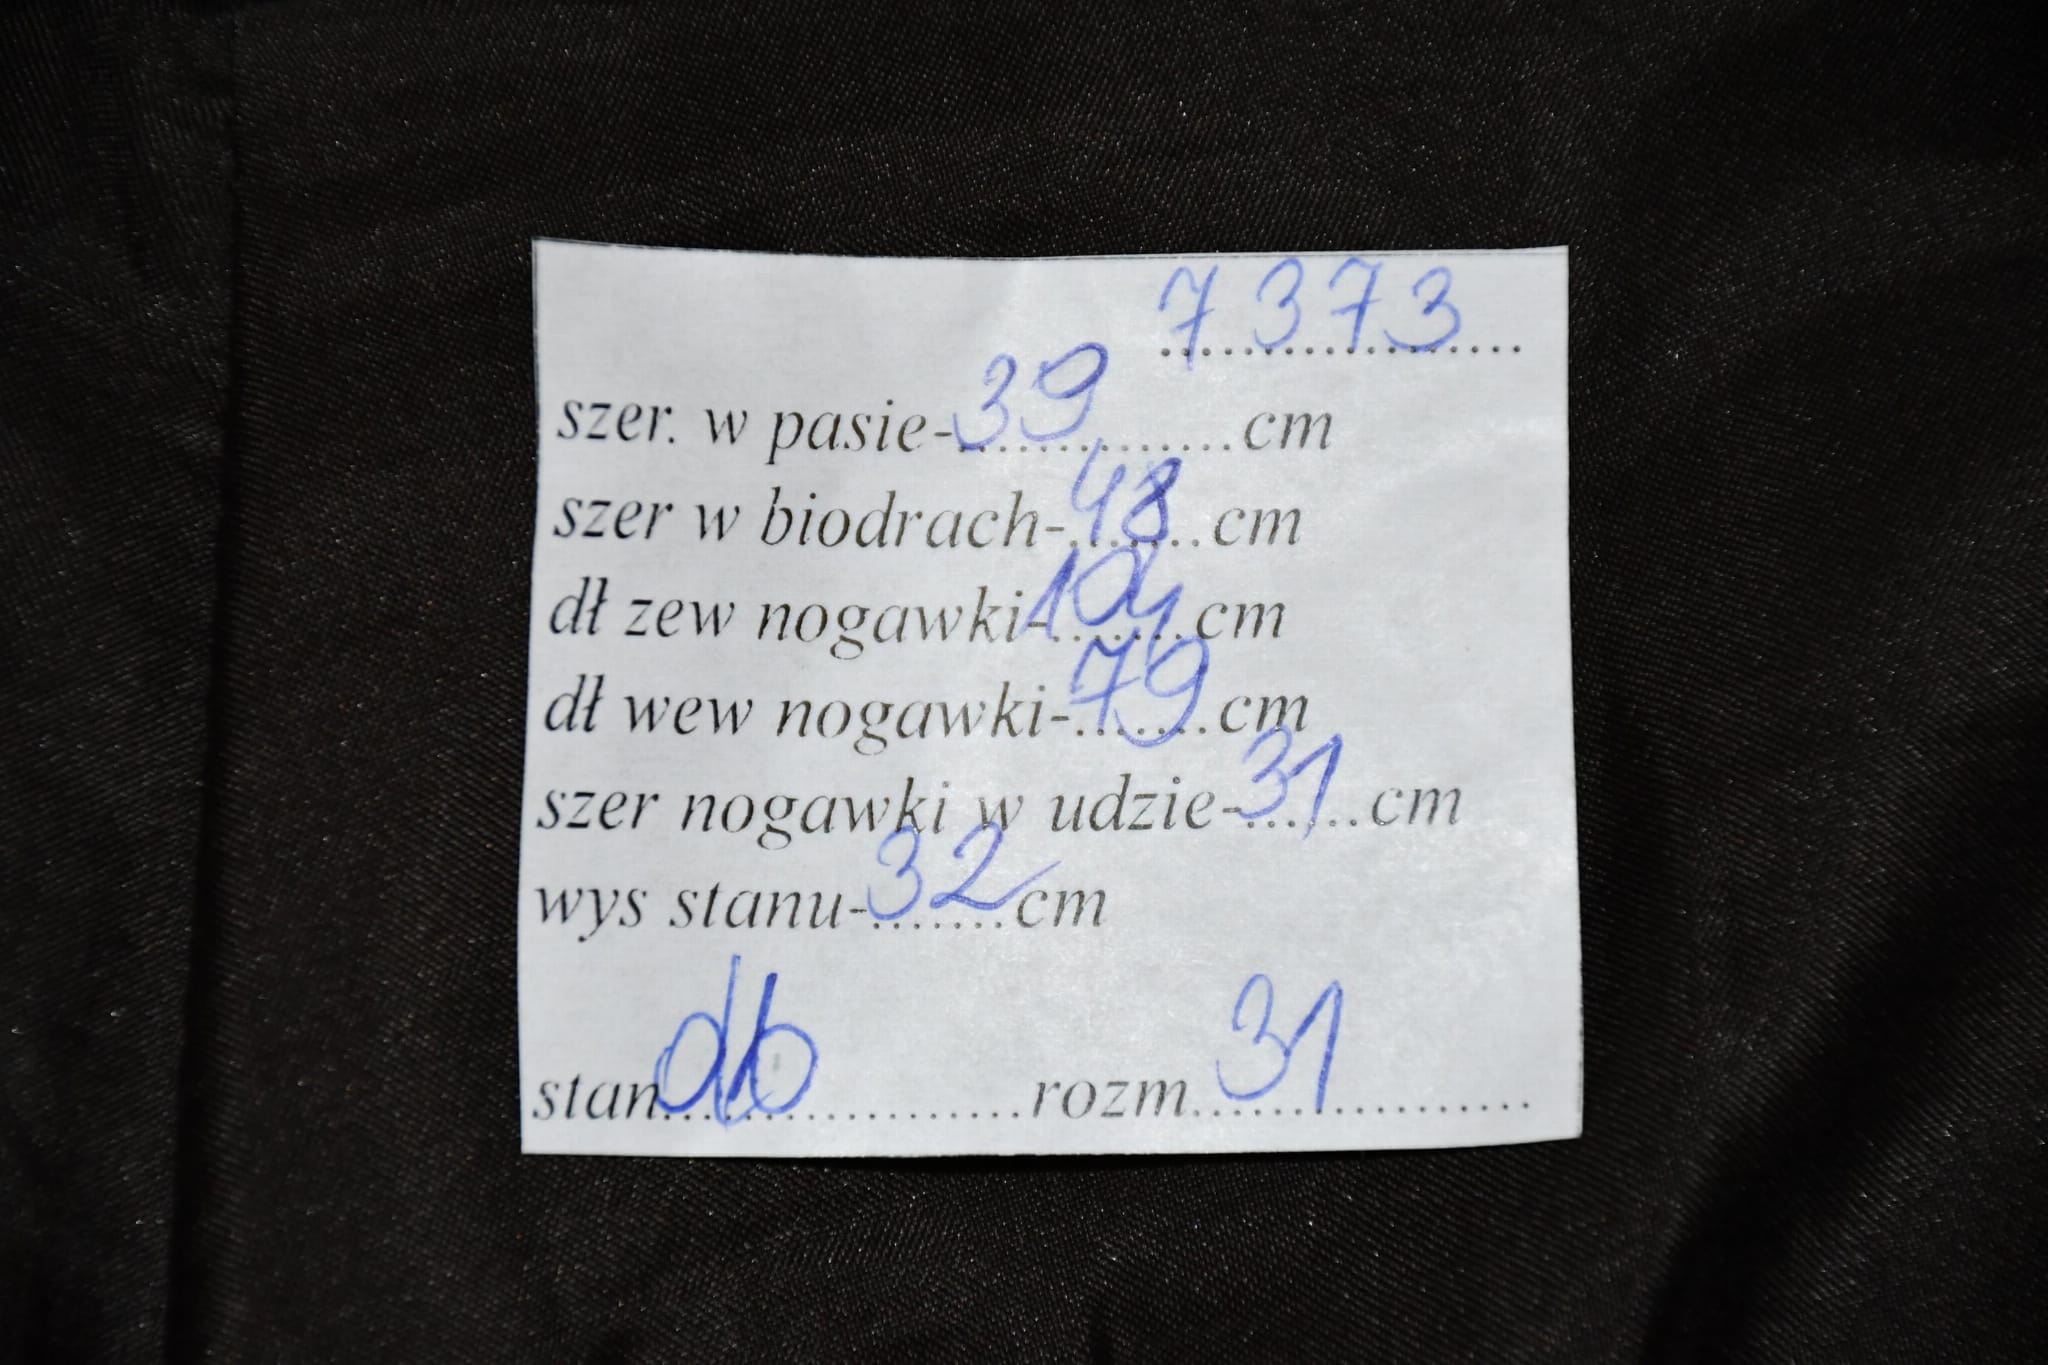 7373
szer. w pasie-39 cm
szer w biodrach-48 cm
dł zew nogawki-104 cm
dł wew nogawki-79 cm
szer nogawki w udzie-31 cm
wys stanu-32 cm
stan db rozm 31